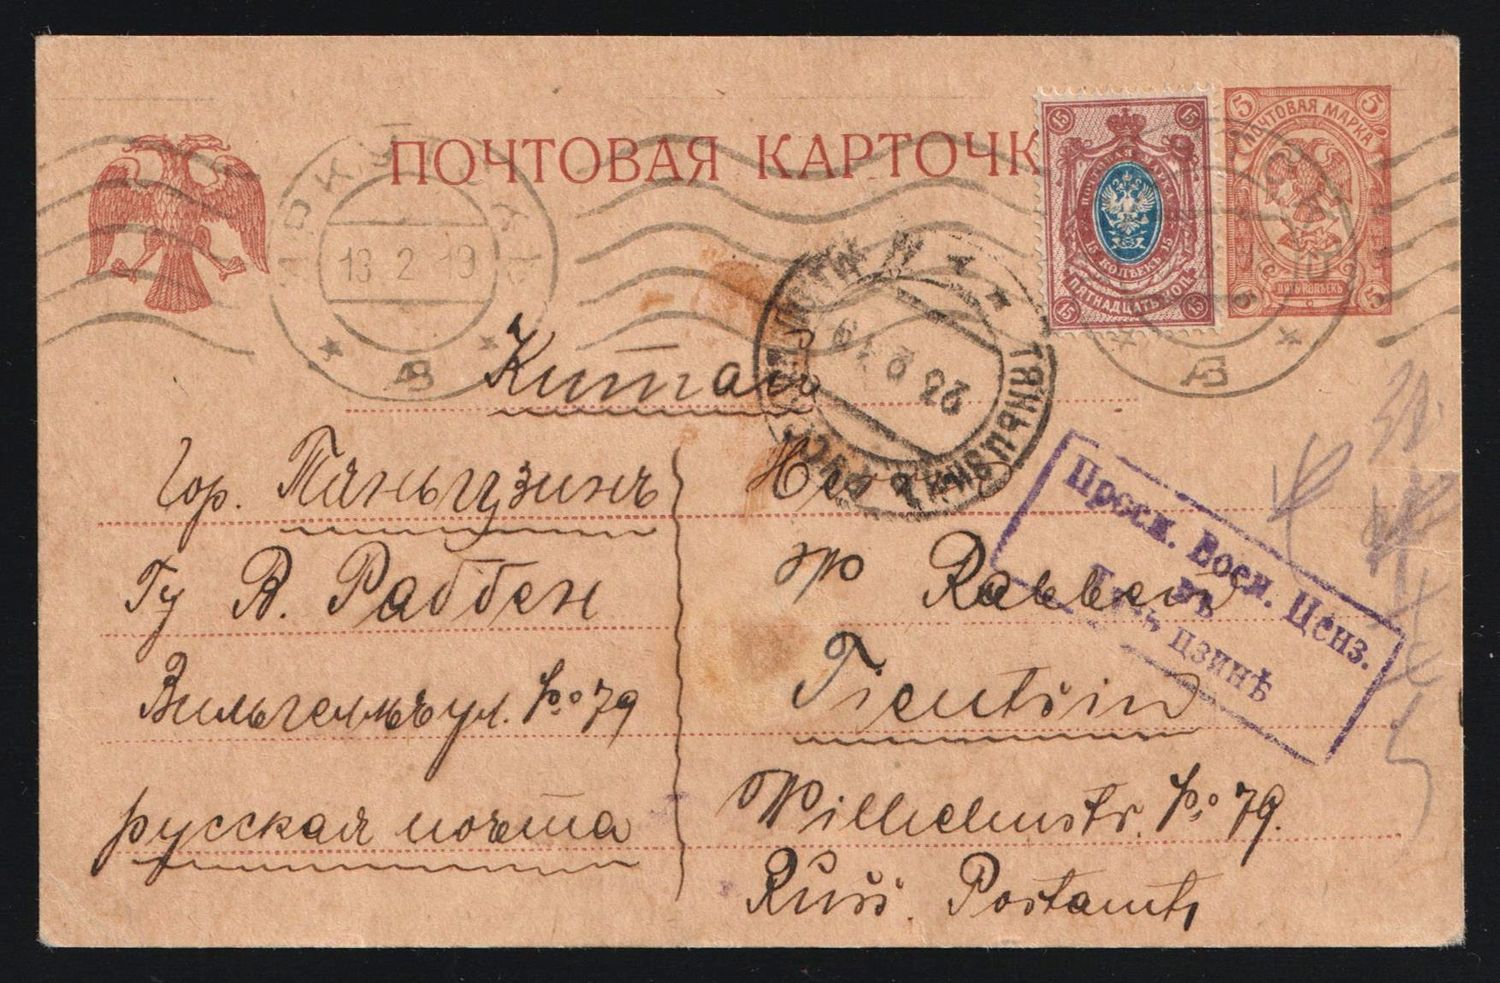 ПОЧТОВАЯ КАРТОЧК
15 15
15 КОПѢЕКЪ 15
ПЯТНАДЦАТЬ КОП.
15 15
5 5
ПОЧТОВАЯ МАРКА
ПЯТЬ КОПѢЕКЪ
5 5
13 2 19
23 2 19
ТЯНЬЦЗИНЬ
Китай
Гор. Тяньцзинъ
Гу В. Раббен
Вильгельмъ ул. № 79
русская почта
Просм. Воен. Ценз.
въ
цзинѣ
W Rabben
Tientsin
Wilhelmstr. № 79.
Russ. Postamt